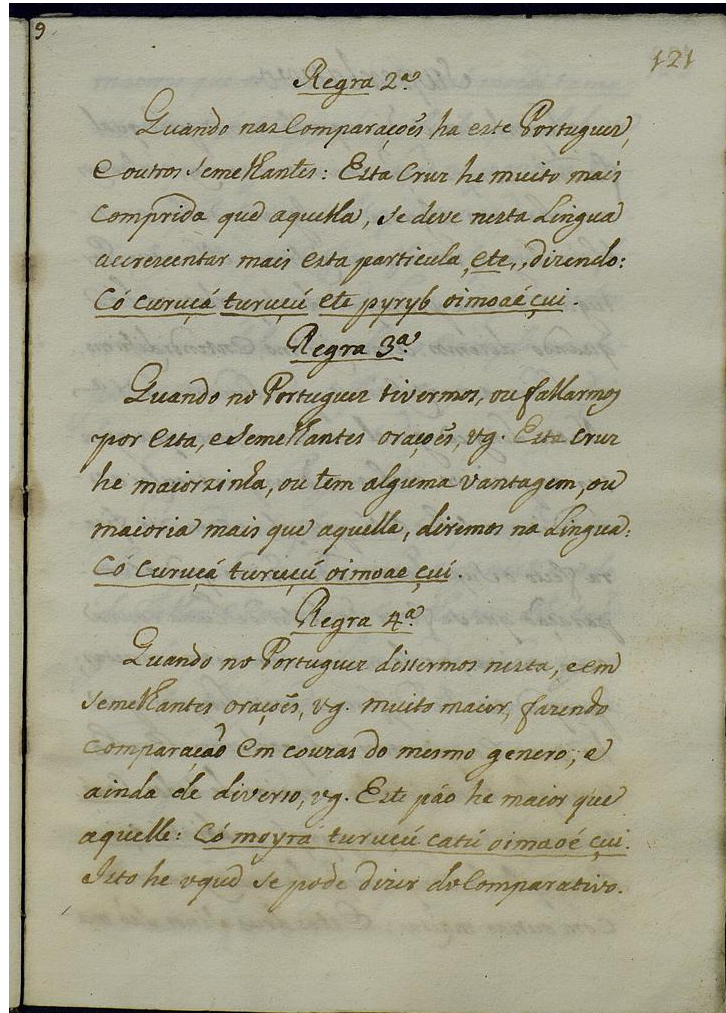 9
121
Regra 2ª
Quando nas Comparaçoẽs ha este Portuguez,
e outros semelhantes: Esta Cruz he muito mais
comprida que aquella, se deve nesta Lingua
accrescentar mais esta particula, ete,, dizendo:
Có curuçá turuçú ete pyryb oimoaé çui.
Regra 3ª
Quando no Portuguez tivermos, ou fallarmos
por esta, e semelhantes oraçoẽs, vg. Esta Cruz
he maiorzinha, ou tem alguma vantagem, ou
maioria mais que aquella, diremos na Lingua:
Có Curuçá turuçú oimoae çuí.
Regra 4ª
Quando no Portuguez dissermos nesta, e em
semelhantes oraçoẽs, vg. muito maior, fazendo
comparação em couzas do mesmo genero, e
ainda de diverso, vg. Este páo he maior que
aquelle: Có moyrá turuçú catú oimaoé çui.
Isto he oque se póde dizer do Comparativo.